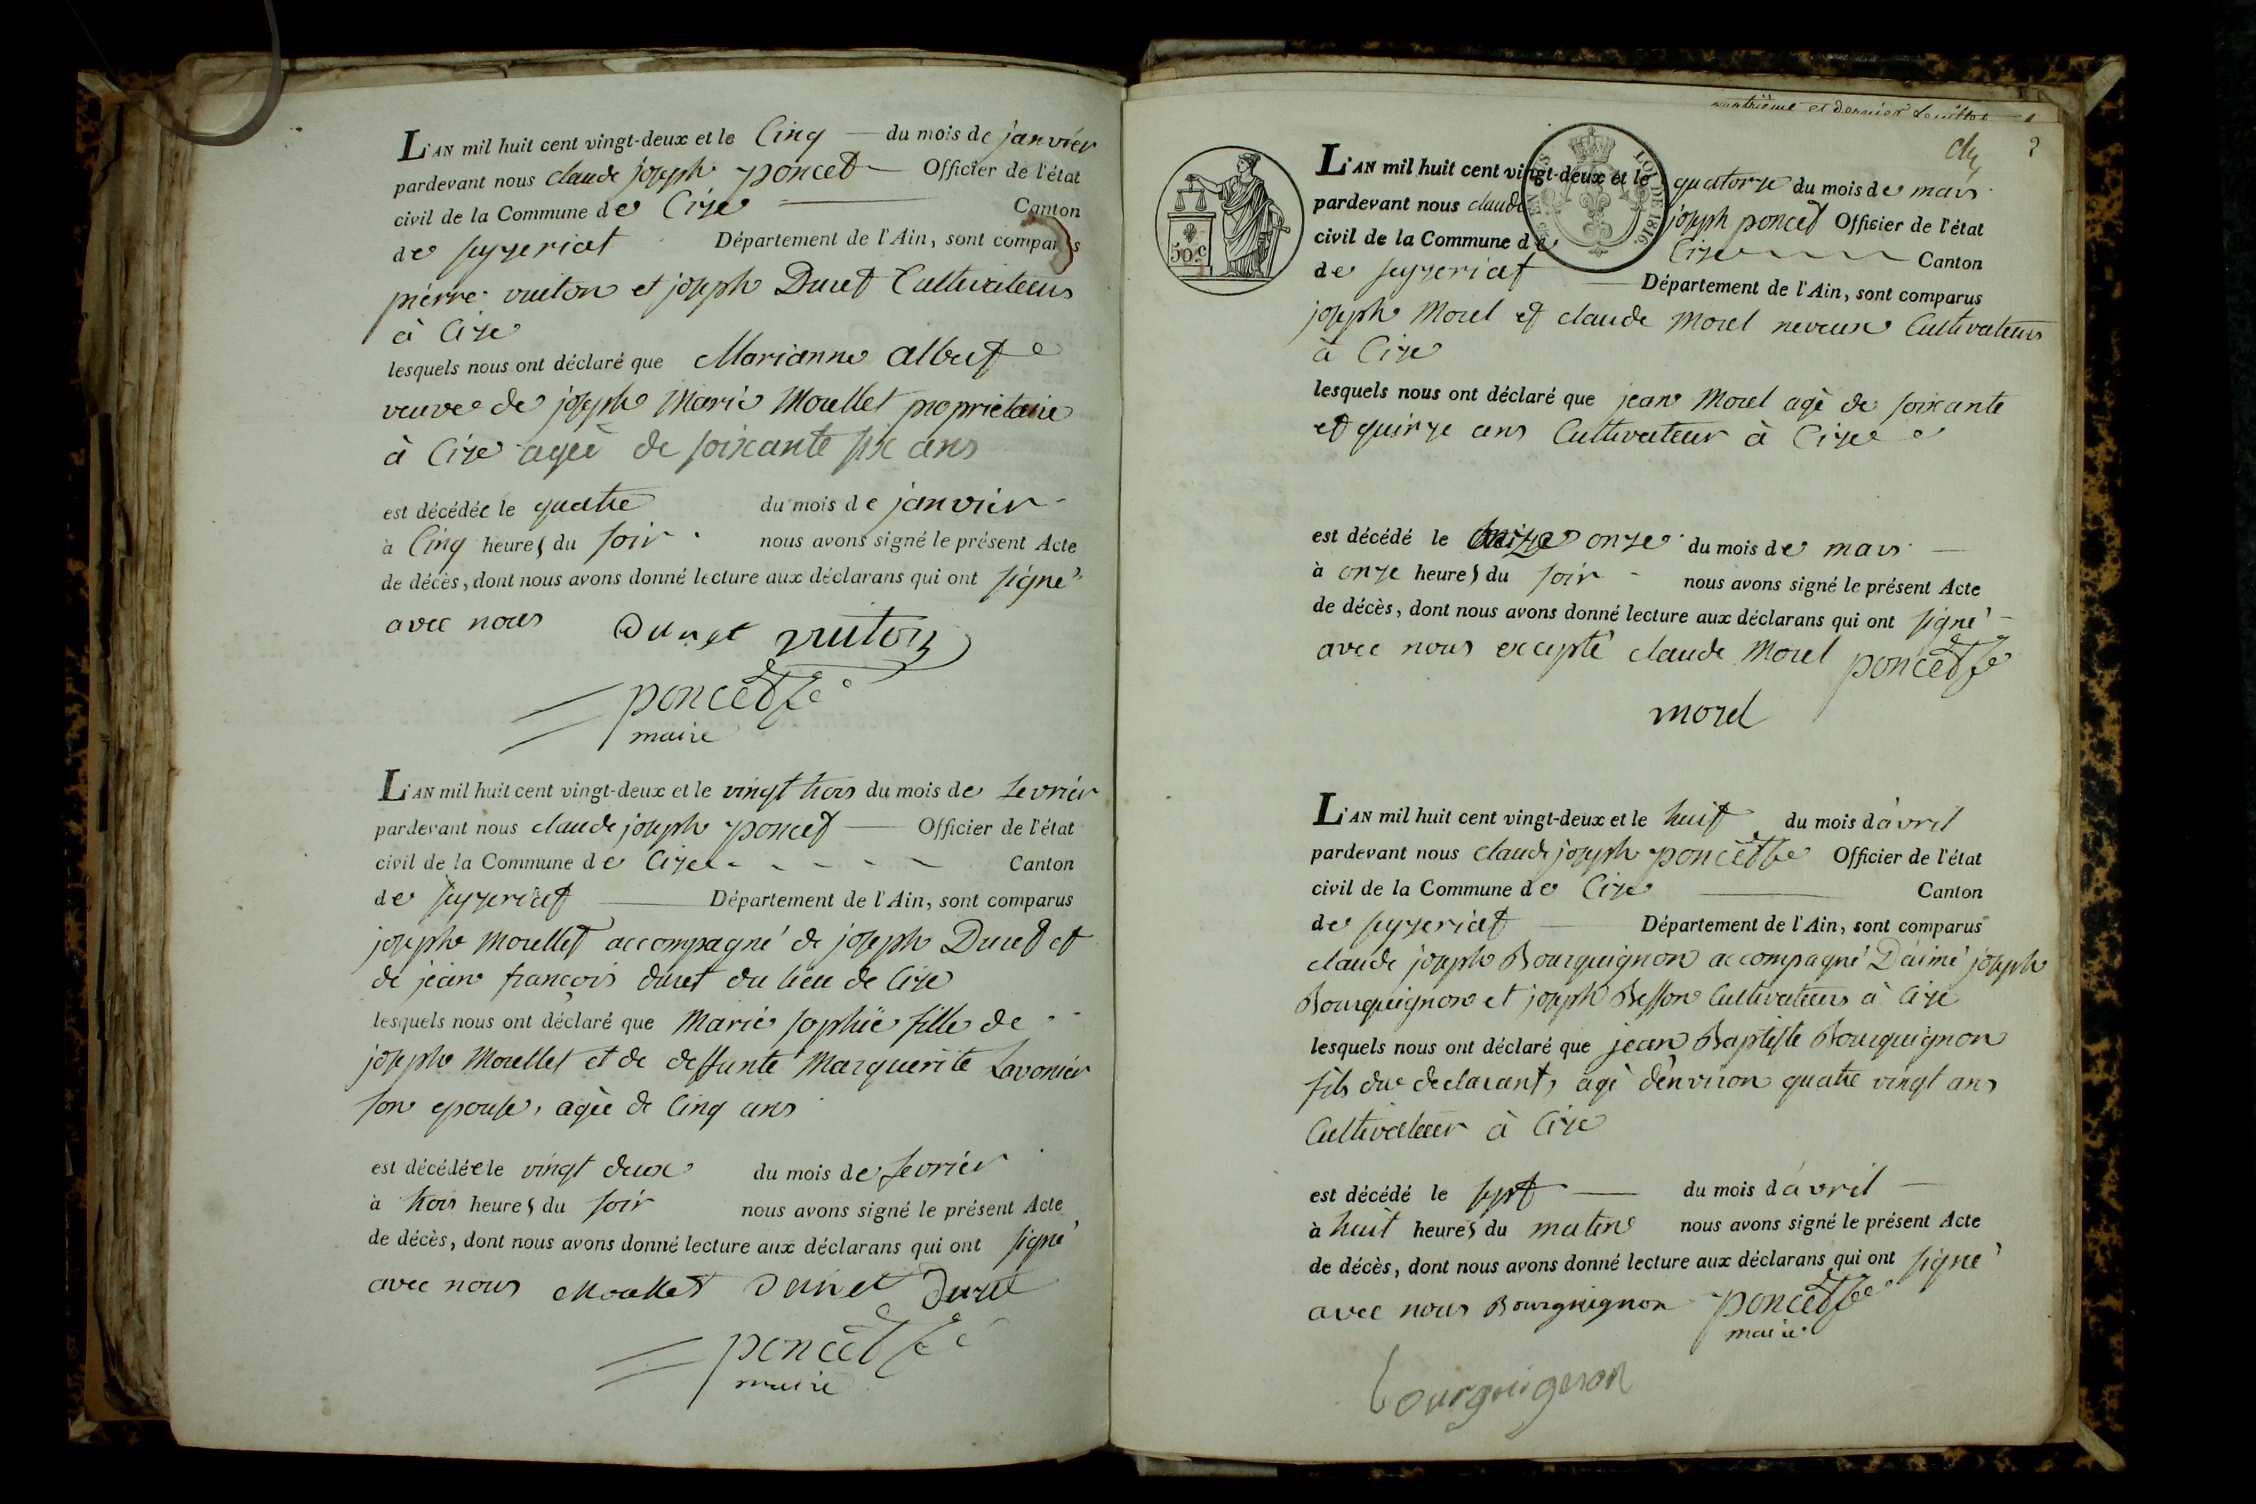 L'AN mil huit cent vingt-deux et le Cinq du mois de janvier
pardevant nous claude joseph poncet Officier de l'état
civil de la Commune de Cize Canton
de seyzeriat Département de l'Ain, sont comparus
pierre vuiton et joseph Duret Cultivateurs
à Cize
lesquels nous ont déclaré que Marianne albert
veuve de joseph Marie Moellet proprietaire
à Cize agée de soixante six ans
est décédée le quatre du mois de janvier
à Cinq heures du soir nous avons signé le présent Acte
de décès, dont nous avons donné lecture aux déclarans qui ont signé
avec nous Duret vuiton
poncet
maire
L'AN mil huit cent vingt-deux et le vingt trois du mois de fevrier
pardevant nous claude joseph poncet Officier de l'état
civil de la Commune de Cize Canton
de seyzeriat Département de l'Ain, sont comparus
joseph Moellet accompagné de joseph Duret et
de jean françois duret du lieu de Cize
lesquels nous ont déclaré que Marie sophie fille de
joseph Moellet et de deffunte Marguerite Lavonier
son epouse, agée de Cinq ans
est décédée le vingt deux du mois de fevrier
à trois heures du soir nous avons signé le présent Acte
de décès, dont nous avons donné lecture aux déclarans qui ont signé
avec nous Moellet Duret Duret
poncet
maire
et dernier feuillet
2
50 c
LOI DE 1816.
L'AN mil huit cent vingt-deux et le quatorze du mois de mars
pardevant nous claude joseph poncet Officier de l'état
civil de la Commune de Cize Canton
de seyzeriat Département de l'Ain, sont comparus
joseph Morel et claude Morel neveux Cultivateurs
à Cize
lesquels nous ont déclaré que jean Morel agé de soixante
et quinze ans Cultivateur à Cize
est décédé le onze du mois de mars
à onze heures du soir nous avons signé le présent Acte
de décès, dont nous avons donné lecture aux déclarans qui ont signé
avec nous excepté claude Morel poncet
morel
L'AN mil huit cent vingt-deux et le huit du mois d'avril
pardevant nous claude joseph poncet Officier de l'état
civil de la Commune de Cize Canton
de seyzeriat Département de l'Ain, sont comparus
claude joseph Bourguignon accompagné D'aimé joseph
Bourguignon et joseph Besson Cultivateurs à Cize
lesquels nous ont déclaré que jean Baptiste Bourguignon
fils du declarant, agé d'environ quatre vingt ans
Cultivateur à Cize
est décédé le sept du mois d'avril
à huit heures du matin nous avons signé le présent Acte
de décès, dont nous avons donné lecture aux déclarans qui ont signé
avec nous Bourguignon poncet
maire
bourguignon